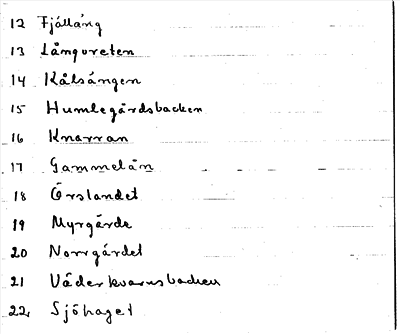 12 Fjälläng
13 Långvreten
14 Kålsängen
15 Humlegårdsbacken
16 Knarran
17 Gammelån
18 Örslandet
19 Myrgärde
20 Norrgärdet
21 Väderkvarnsbacken
22 Sjöhaget